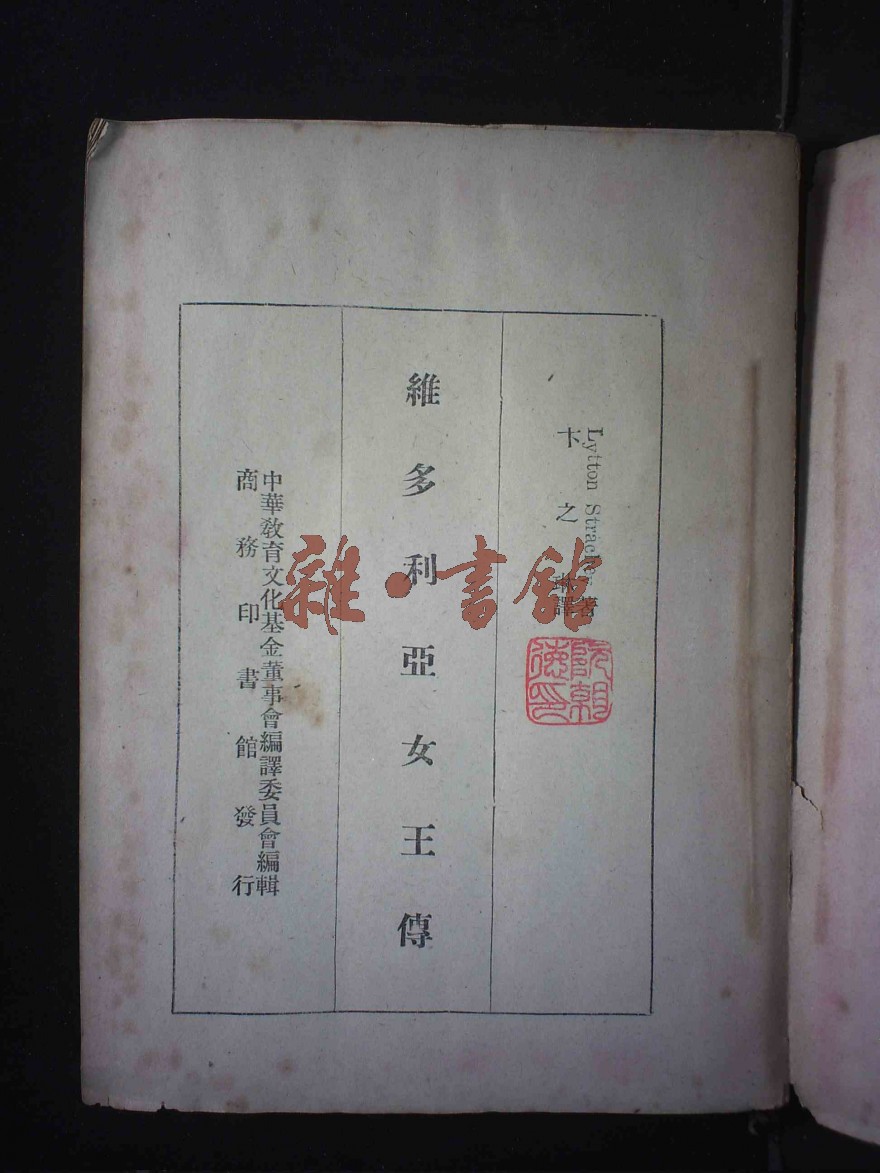 Lytton Strachey 著
卞之琳譯
維多利亞女王傳
中華敎育文化基金董事會編譯委員會編輯
商務印書館發行
雜·書館